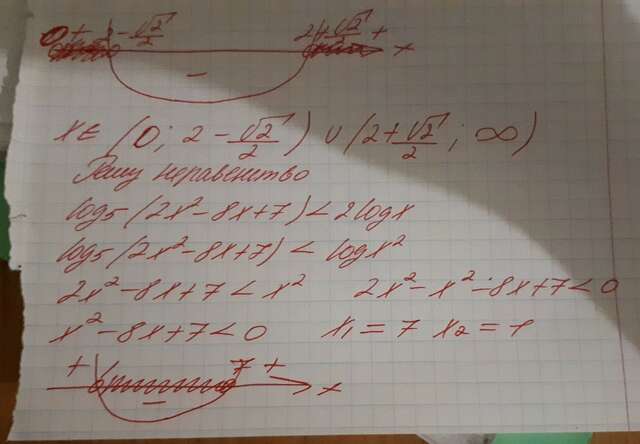 0 + 2-√2/2 2+√2/2 + x
-
x∈ (0; 2-√2/2) ∪ (2+√2/2; ∞)
Решу неравенство
log5 (2x²-8x+7) < 2logx
log5 (2x²-8x+7) < logx²
2x²-8x+7 < x² 2x²-x²-8x+7<0
x²-8x+7<0 x1=7 x2=1
+ 7 + x
-